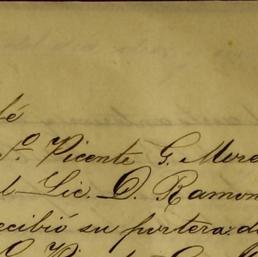 S.º Vicente G. Mere
l Lic. D. Ramon
ecibió su portera: d